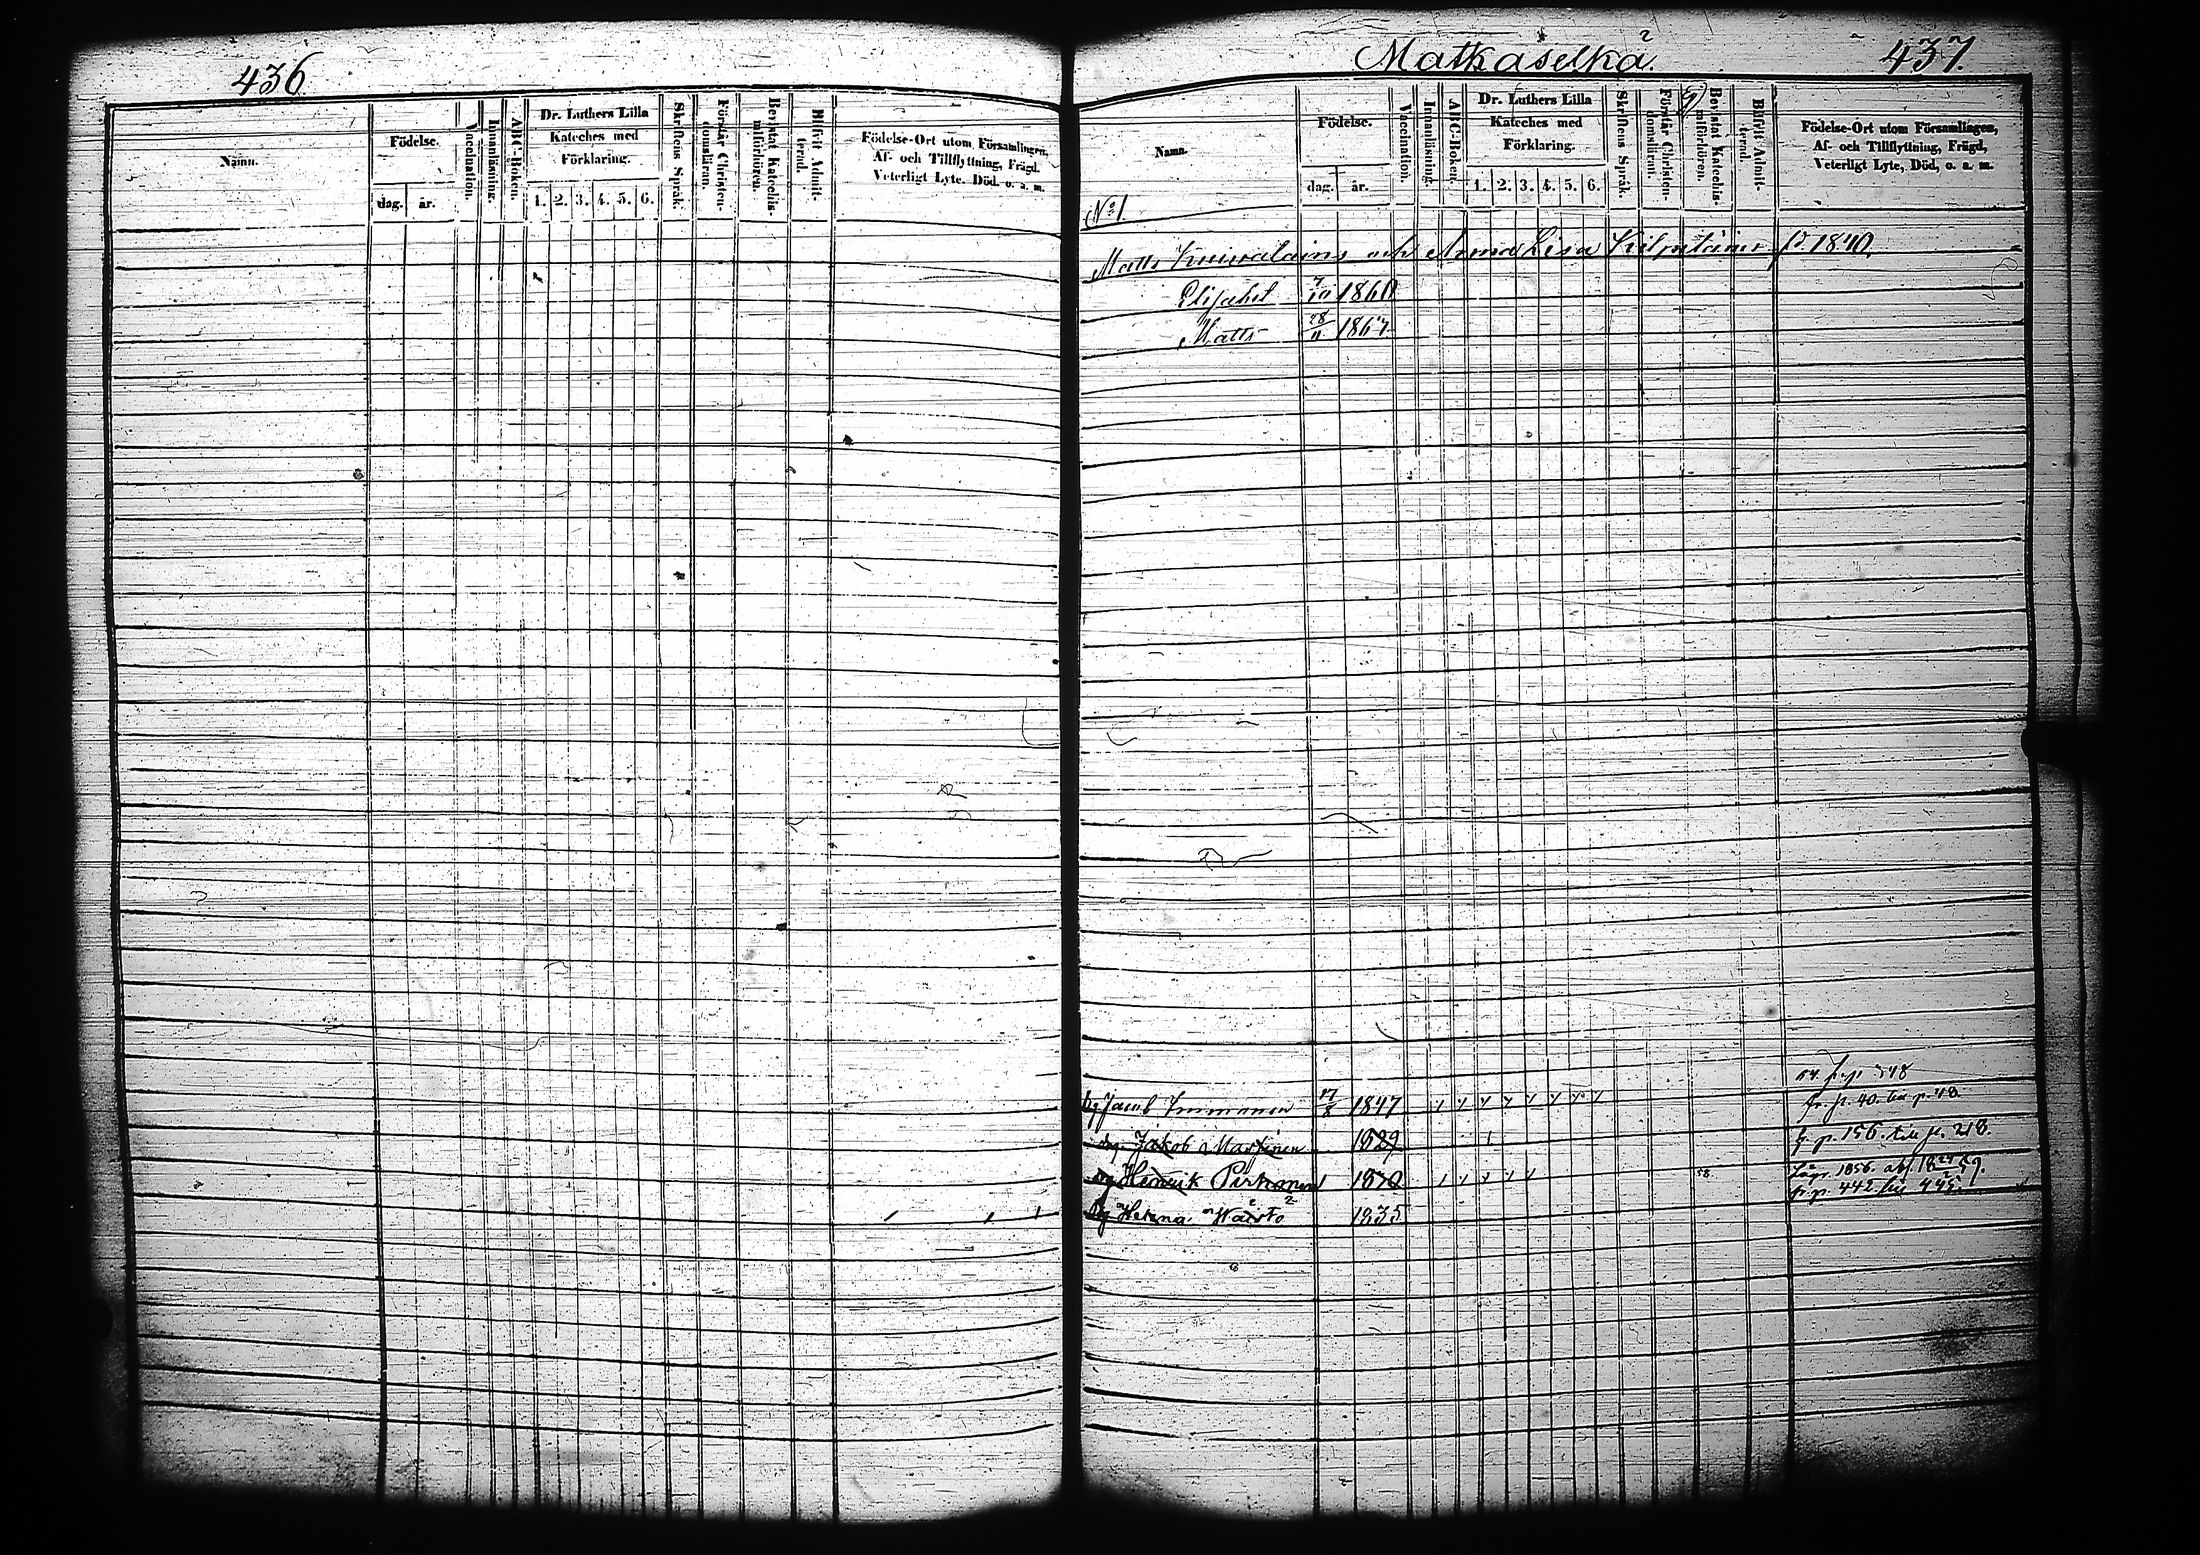 436
Namn.
Födelse.
dag. år.
Vaccination.
Innanläsning.
ABC-Boken.
Dr. Luthers Lilla
Kateches med
Förklaring.
1. 2. 3. 4. 5. 6.
Skriftens Språk.
Förstår Christen-
domsläran.
Bevistat Katechis-
miförhören.
Blifvit Admit-
terad.
Födelse-Ort utom Församlingen,
Af- och Tillflyttning, Frägd,
Veterligt Lyte, Död, o. a. m.
Matkaselkä
437.
Namn.
Födelse.
dag. år.
Vaccination.
Innanläsning.
ABC-Boken.
Dr. Luthers Lilla
Kateches med
Förklaring.
1. 2. 3. 4. 5. 6.
Skriftens Språk.
Förstår Christen-
domsläran.
Bevistat Katechis-
miförhören.
Blifvit Admit-
terad.
Födelse-Ort utom Församlingen,
Af- och Tillflyttning, Frägd,
Veterligt Lyte, Död, o. a. m.
No 1
Matts och Anna Lisa 1840.
Elisabet 7/10 1860
Matts 28/11 1867
Jacob Immonen 17/8 1847 fr. p. 40. till p. 48
Jakob Martinen 1829 f. p. 156. till p. 218.
Henrik Pirhonen 58 1856.
p. 442. till 445.
Helena 1835